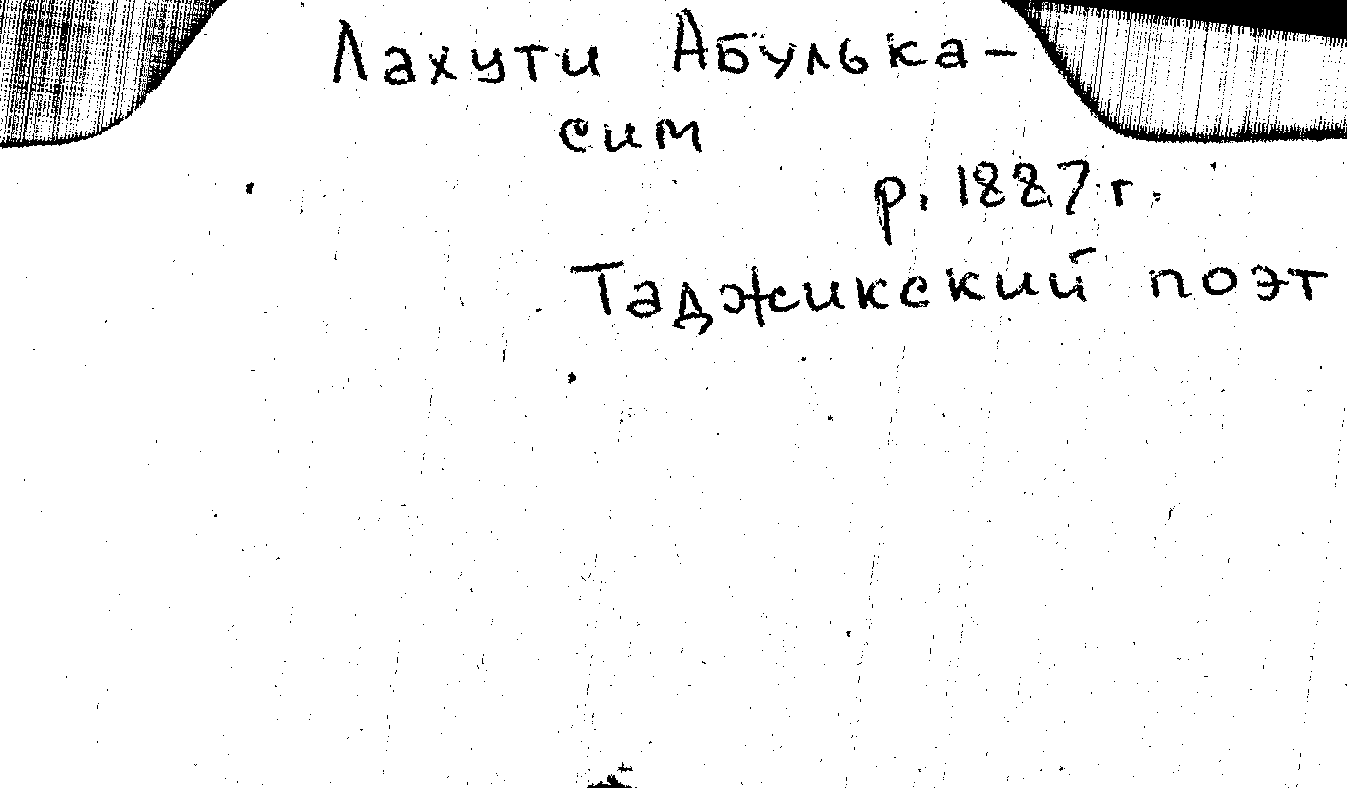 Лахути Абулька-
сим
р. 1887 г.
Таджикский поэт